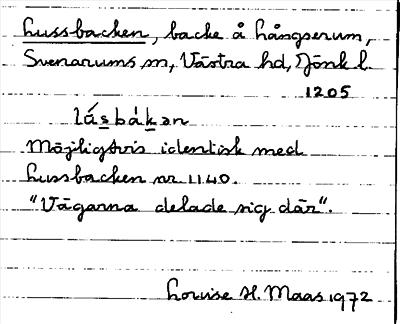 Lussbacken, backe å Långserum,
Svenarums sn, Västra hd, Jönk l.
1205
lásbákən
Möjligtvis identisk med
Lussbacken nr 1140.
"Vägarna delade sig där".
Louise H. Maas 1972